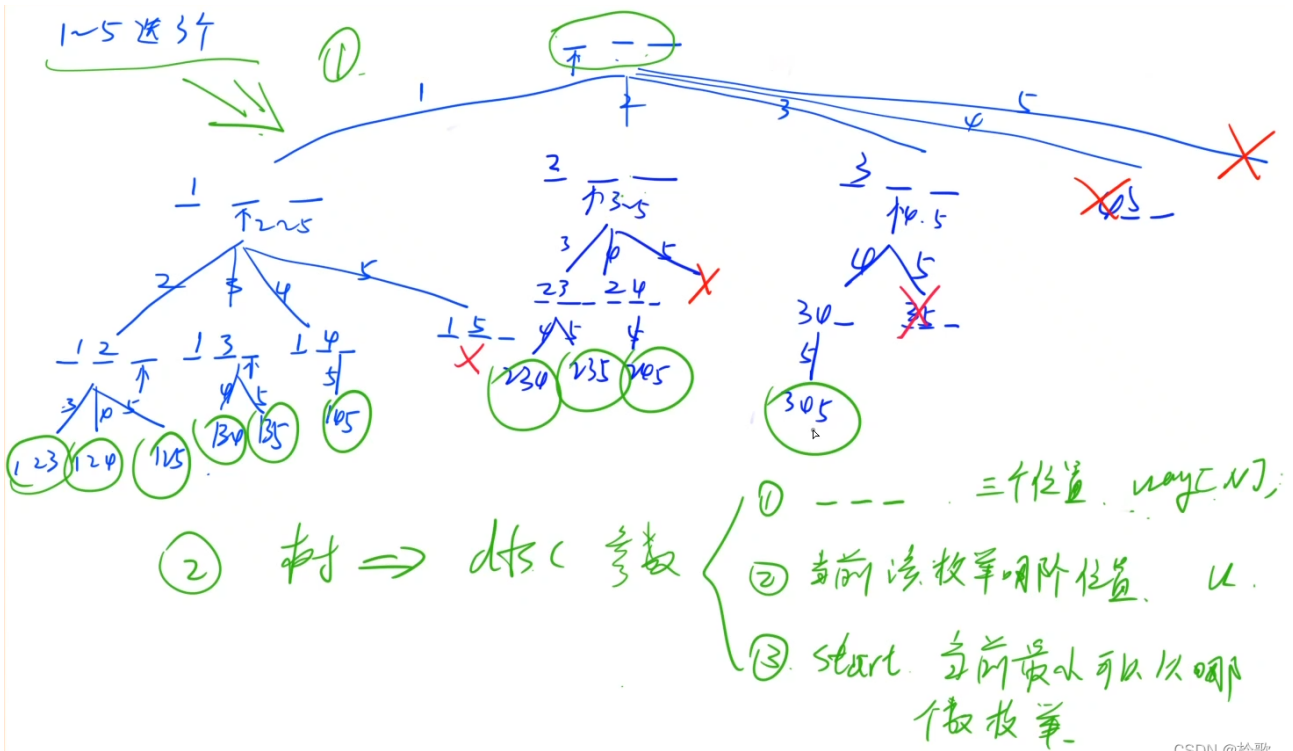 1~5 选 3个
①
1 2 3 4 5
1 _ _ 2 _ _ 3 _ _ 45 _
2~5 3~5 4.5
2 3 4 5 3 4 5 4 5
12 _ 13 _ 14 _ 15 _ 23 _ 24 _ 34 _ 35 _
3 4 5 4 5 5 4 5 5 5
123 124 125 134 135 145 234 235 245 345
① _ _ _ . 三个位置. way[N];
② 树 ⇒ dfs( 参数
② 当前该枚举哪个位置. u.
③. start. 当前最小可以从哪
个数枚举
CSDN @拾歌